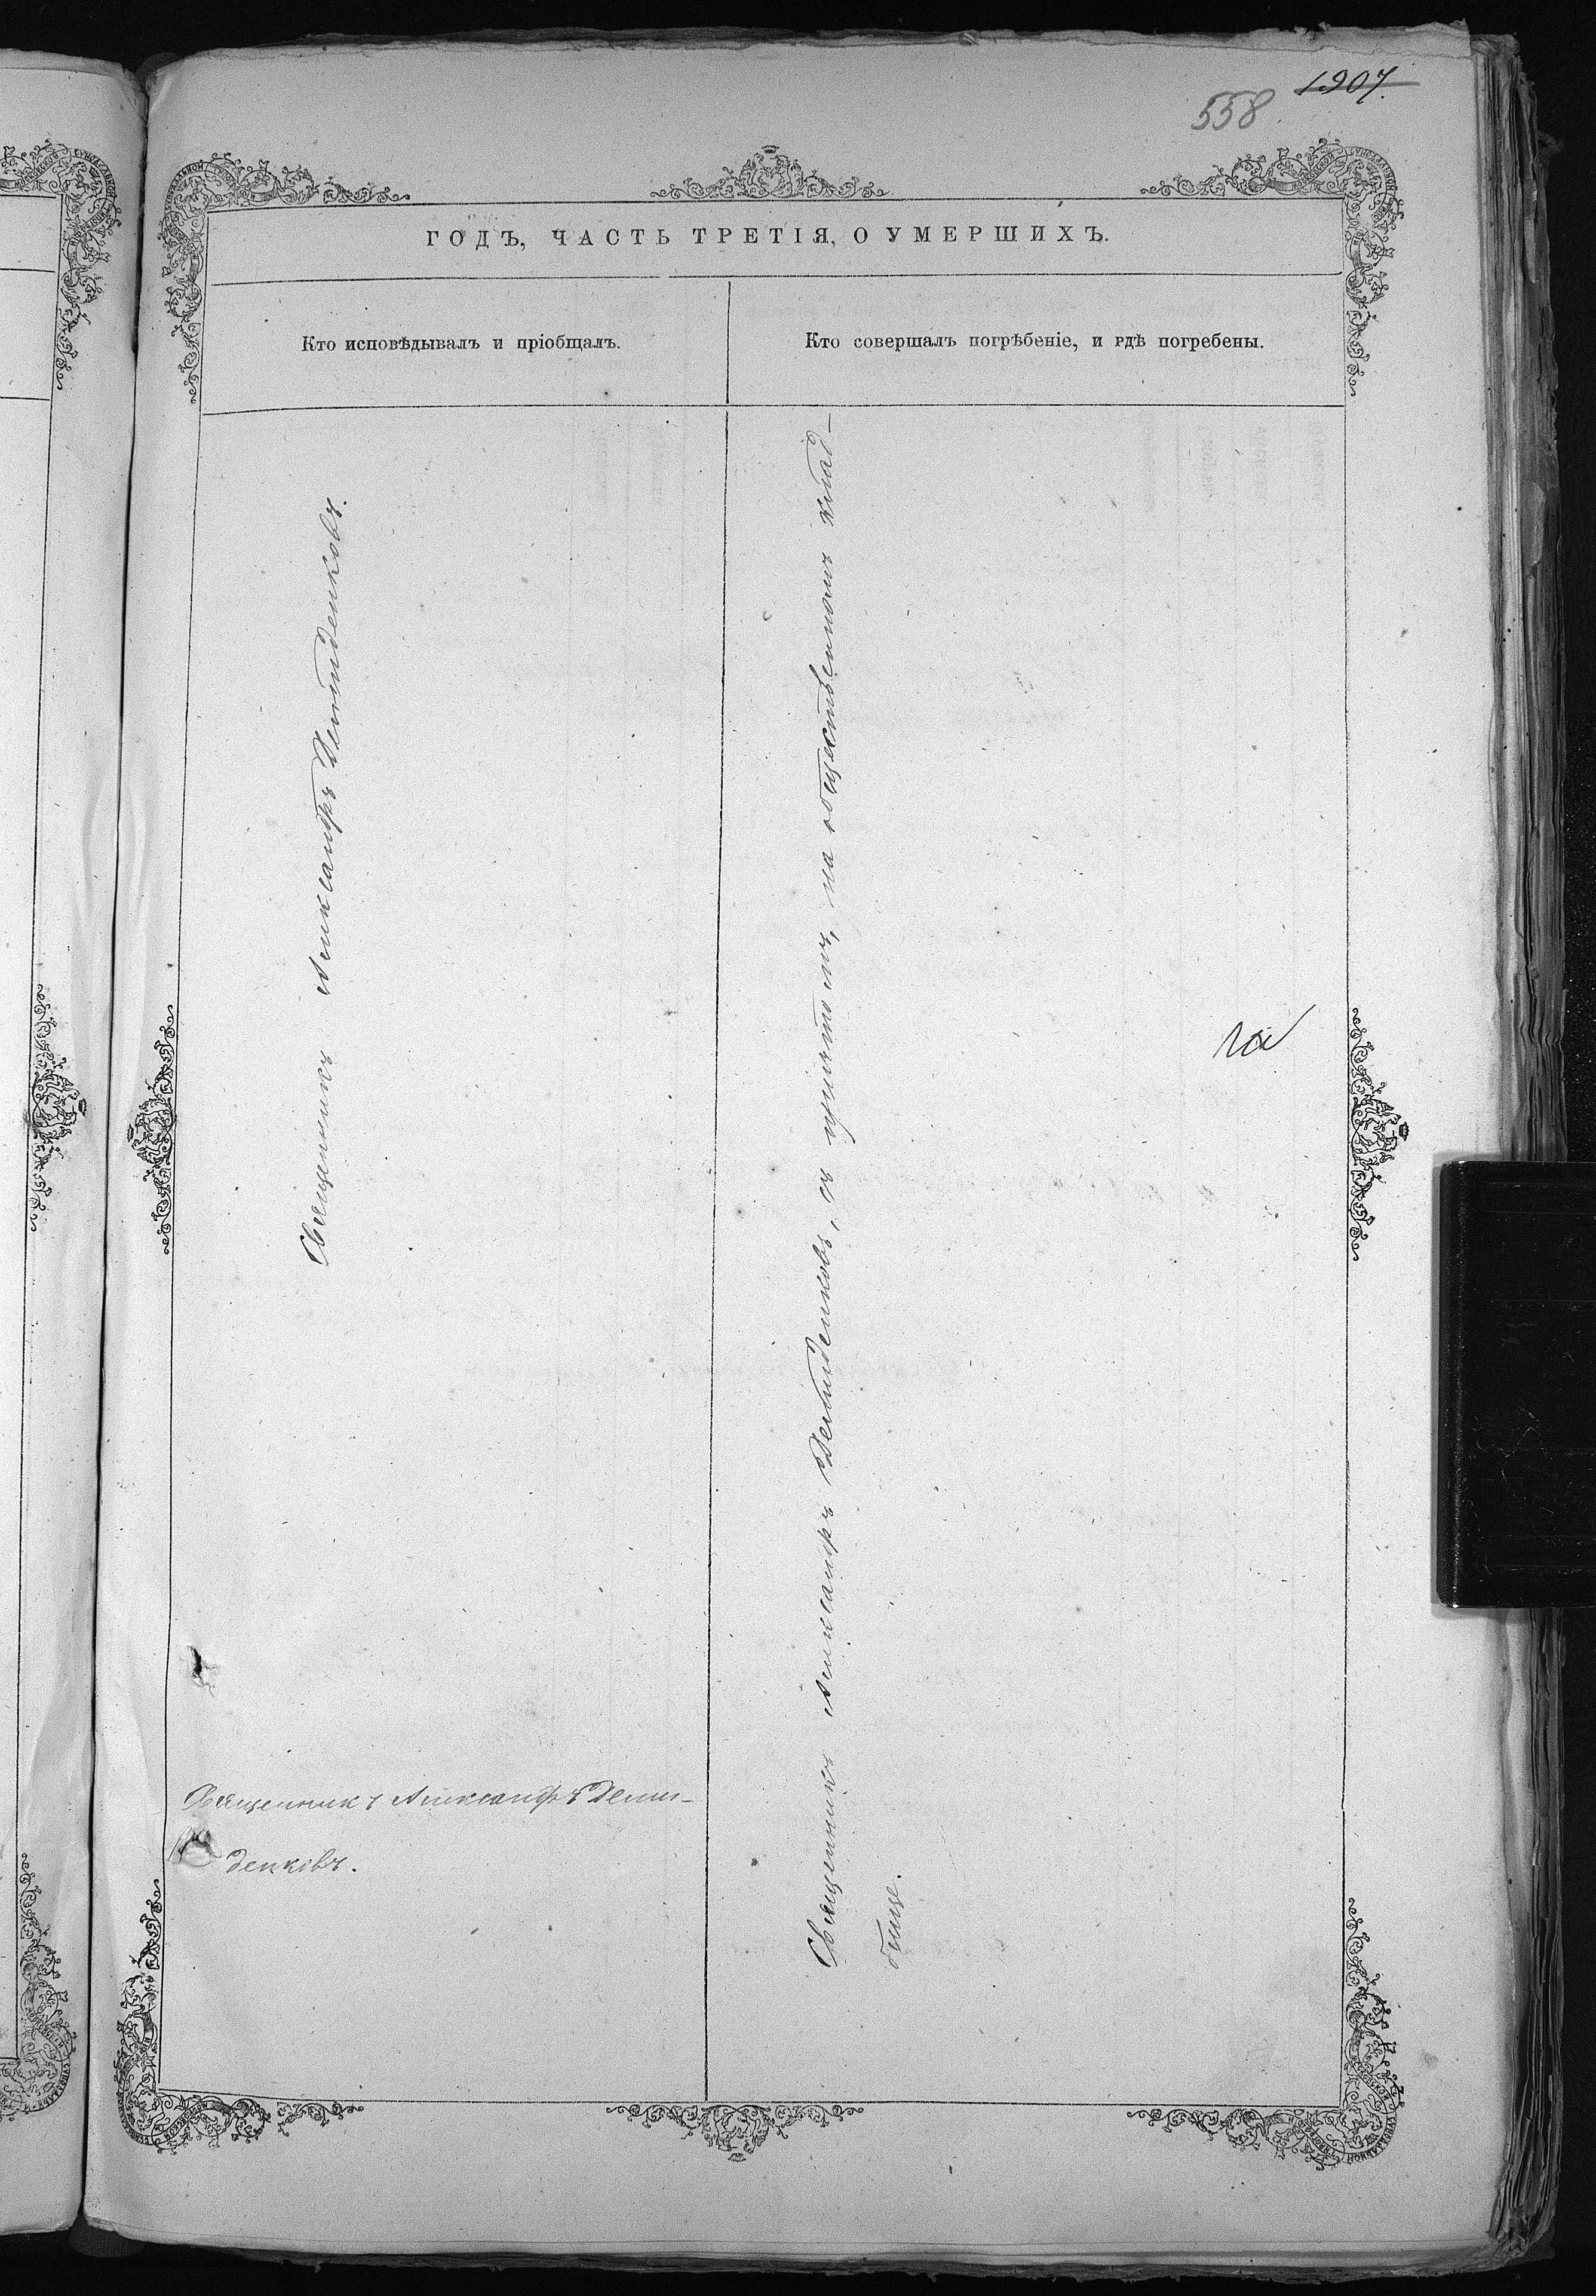 1907.
558
ГОДЪ, ЧАСТЬ ТРЕТІЯ, О УМЕРШИХЪ.
Кто исповѣдывалъ и пріобщалъ.
Кто совершалъ погрѣбеніе, и гдѣ погребены.
Священникъ Александръ Демиденковъ.
Священникъ Александръ Деми-
денковъ.
Священникъ Александръ Демиденковъ, съ причтомъ, на общественномъ клад-
бище.